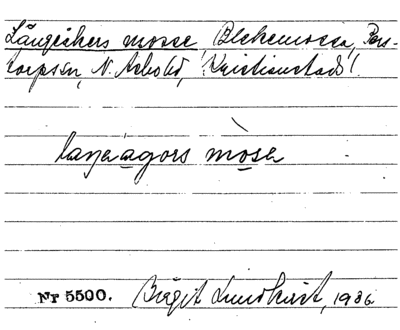 Långåkers mosse, Blekemossa, Pers-
torps sn, N. Åsbo hd, Kristianstads l.
laŋaågors mòsa
Nr 5500. Birgit Lundkvist, 1936